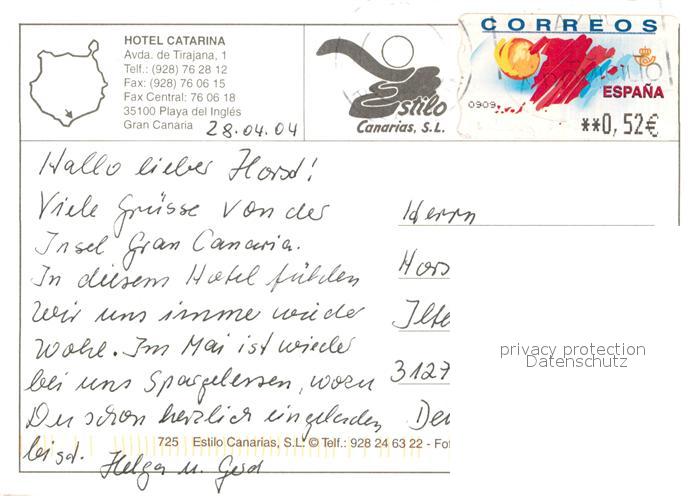 HOTEL CATARINA
Avda. de Tirajana, 1
Telf.: (928) 76 28 12
Fax: (928) 76 06 15
Fax Central: 76 06 18
35100 Playa del Inglés
Gran Canaria
28.04.04
Estilo
Canarias, S.L.
CORREOS
ESPAÑA
0909
**0,52€
Hallo lieber Horst!
Viele Grüsse von der
Insel Gran Canaria.
In diesem Hotel fühlen
wir uns immer wieder
wohl. Im Mai ist wieder
bei uns Spargelessen, wozu
Du schon herzlich eingeladen
bist.
Helga u. Gerd
Herrn
Hors
Ilte
3127
Den
privacy protection
Datenschutz
725 Estilo Canarias, S.L. © Telf.: 928 24 63 22 - Fot